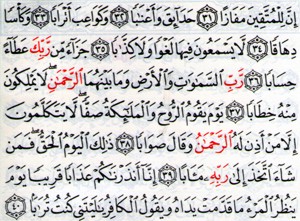 إِنَّ لِلْمُتَّقِينَ مَفَازًا ٣١ حَدَائِقَ وَأَعْنَابًا ٣٢ وَكَوَاعِبَ أَتْرَابًا ٣٣ وَكَأْسًا
دِهَاقًا ٣٤ لَا يَسْمَعُونَ فِيهَا لَغْوًا وَلَا كِذَّابًا ٣٥ جَزَاءً مِنْ رَبِّكَ عَطَاءً
حِسَابًا ٣٦ رَبِّ السَّمَوَاتِ وَالْأَرْضِ وَمَا بَيْنَهُمَا الرَّحْمَنِ لَا يَمْلِكُونَ
مِنْهُ خِطَابًا ٣٧ يَوْمَ يَقُومُ الرُّوحُ وَالْمَلَئِكَةُ صَفًّا لَا يَتَكَلَّمُونَ
إِلَّا مَنْ أَذِنَ لَهُ الرَّحْمَنُ وَقَالَ صَوَابًا ٣٨ ذَلِكَ الْيَوْمُ الْحَقُّ فَمَنْ
شَاءَ اتَّخَذَ إِلَى رَبِّهِ مَئَابًا ٣٩ إِنَّا أَنْذَرْنَاكُمْ عَذَابًا قَرِيبًا يَوْمَ
يَنْظُرُ الْمَرْءُ مَا قَدَّمَتْ يَدَاهُ وَيَقُولُ الْكَافِرُ يَلَيْتَنِي كُنْتُ تُرَابًا ٤٠